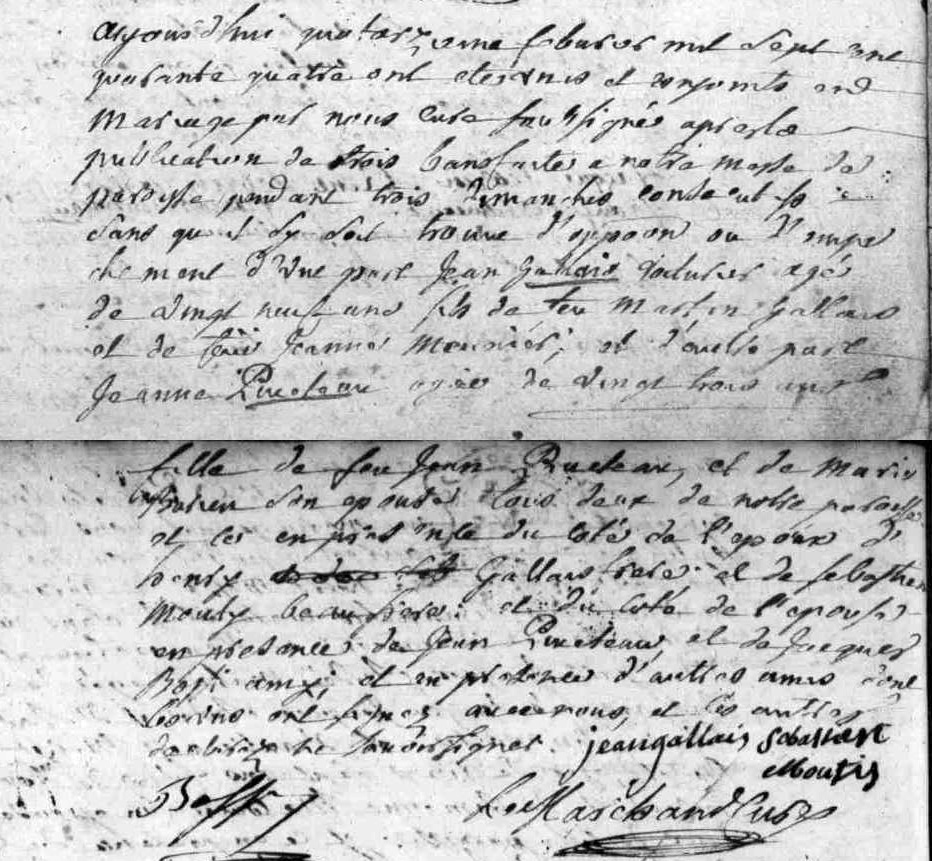 aujourd'hui quatorzieme febvrier mil sept cent
quarante quatre ont eté unis et conjoints en
Mariage par nous curé soussigné apres la
publication de trois bans faite a notre messe de
paroisse pendant trois dimanches consecutifs
sans qu'il s'y soit trouvé d'oppoon ou d'empe
chement d'une part Jean Gallais voiturier agé
de vingt neuf ans fils de feu Martin Gallais
et de feüe Jeanne Meunier, et d'autre part
Jeanne Pineteau agée de vingt trois ans
fille de feu Jean Pineteau, et de Marie
son epouse tous deux de notre paroisse
et ce en presence du coté de l'epoux de
henry Gallais frere et de sebastien
Mouty beaufrere: et du coté de l'epouse
en presence de Jean Pineteau, et de Jacques
amy, et en presence d'autres amis dont
les uns ont signez avec nous, et les autres
declarez ne savoir signer jean gallais sebastien
Moutis
Le Marchand Curé